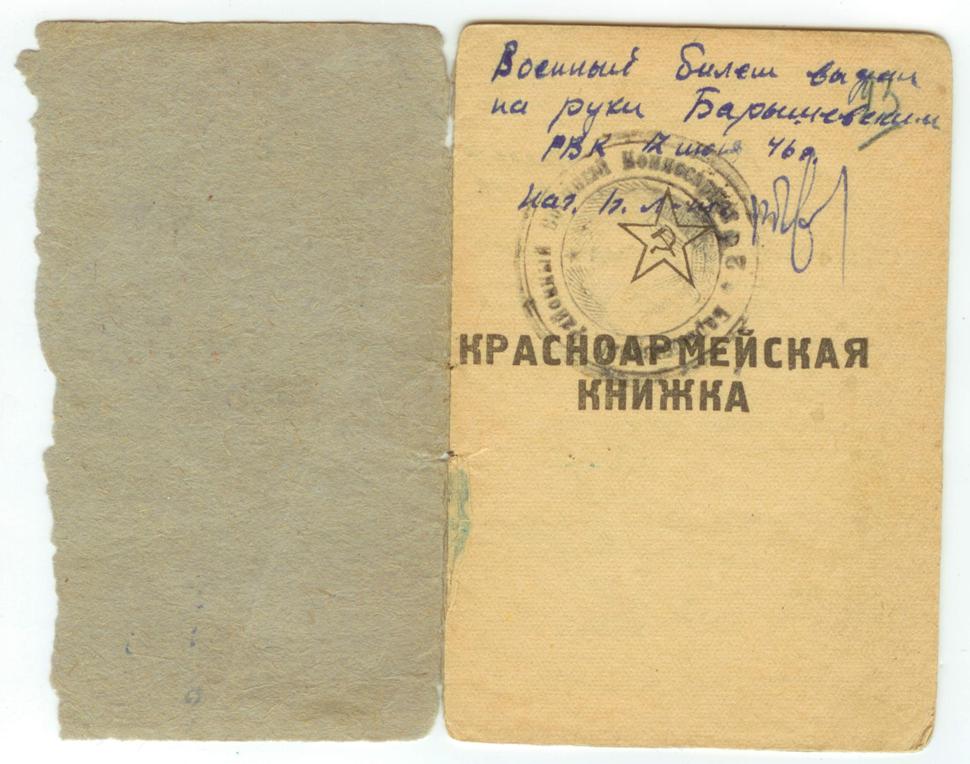 Военный билет выдан
на руки Барышевским
РВК 12 июня 46г.
Нач. в. л-т
Районный Военный Комиссариат
КРАСНОАРМЕЙСКАЯ
КНИЖКА